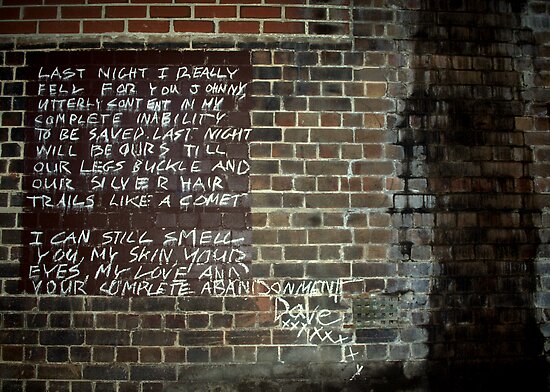 LAST NIGHT I REALLY
FELL FOR YOU JOHNNY,
UTTERLY CONTENT IN MY
COMPLETE INABILITY
TO BE SAVED. LAST NIGHT
WILL BE OURS TILL
OUR LEGS BUCKLE AND
OUR SILVER HAIR
TRAILS LIKE A COMET
I CAN STILL SMELL
YOU, MY SKIN, YOUR
EYES, MY LOVE AND
YOUR COMPLETE ABANDONMENT
Dave
xxxxxx
x
x